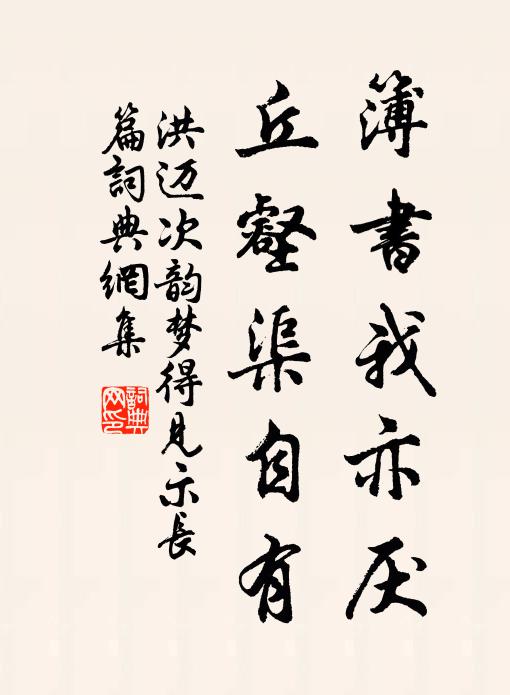 簿書我亦厌
丘壑渠自有
洪迈次韵梦得见示长
篇詞典網集
詞典网印